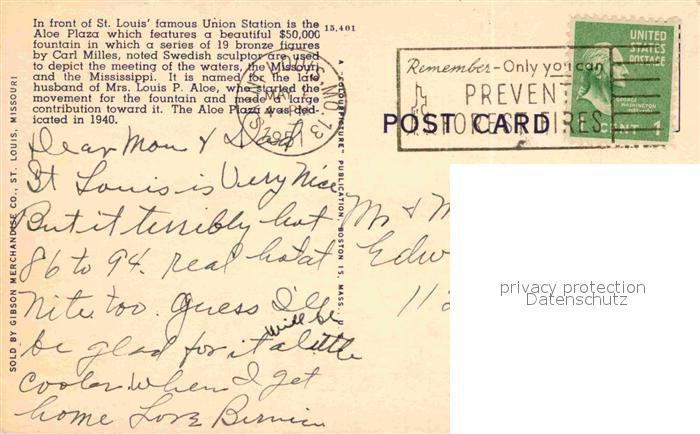 In front of St. Louis' famous Union Station is the
Aloe Plaza which features a beautiful $50,000
fountain in which a series of 19 bronze figures
by Carl Milles, noted Swedish sculptor are used
to depict the meeting of the waters, the Missouri
and the Mississippi. It is named for the late
husband of Mrs. Louis P. Aloe, who started the
movement for the fountain and made a large
contribution toward it. The Aloe Plaza was dedi-
cated in 1940.
15,401
SOLD BY GIBSON MERCHANDISE CO., ST. LOUIS, MISSOURI
PUBLICATION, BOSTON 15, MASS., U.
SAINT LOUIS, MO. 13
MAY
1951
Remember - Only you can
PREVENT
FOREST FIRES
UNITED
STATES
POSTAGE
GEORGE WASHINGTON
1 CENT 1
POST CARD
Dear Mom & Dad
St Louis is Very Nice
But it terribly hot
86 to 94. real hot at
nite too. Guess I'll
be glad for it a little
will be
cooler when I get
home Love Bernice
Mr & M
Edw
11
privacy protection
Datenschutz